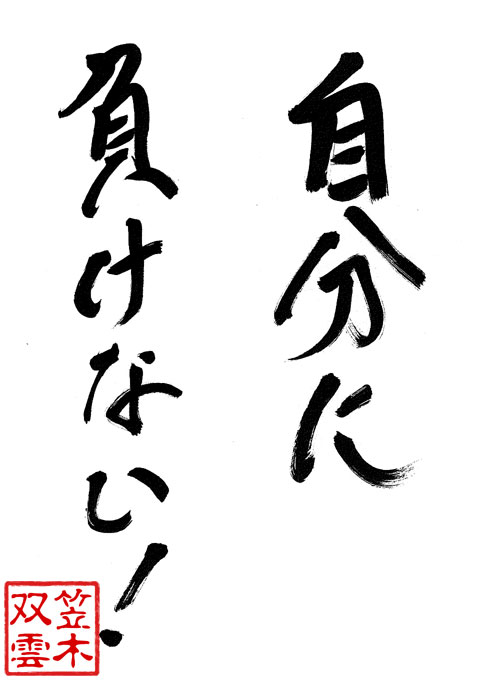 自分に
負けない！
笠木
双雲